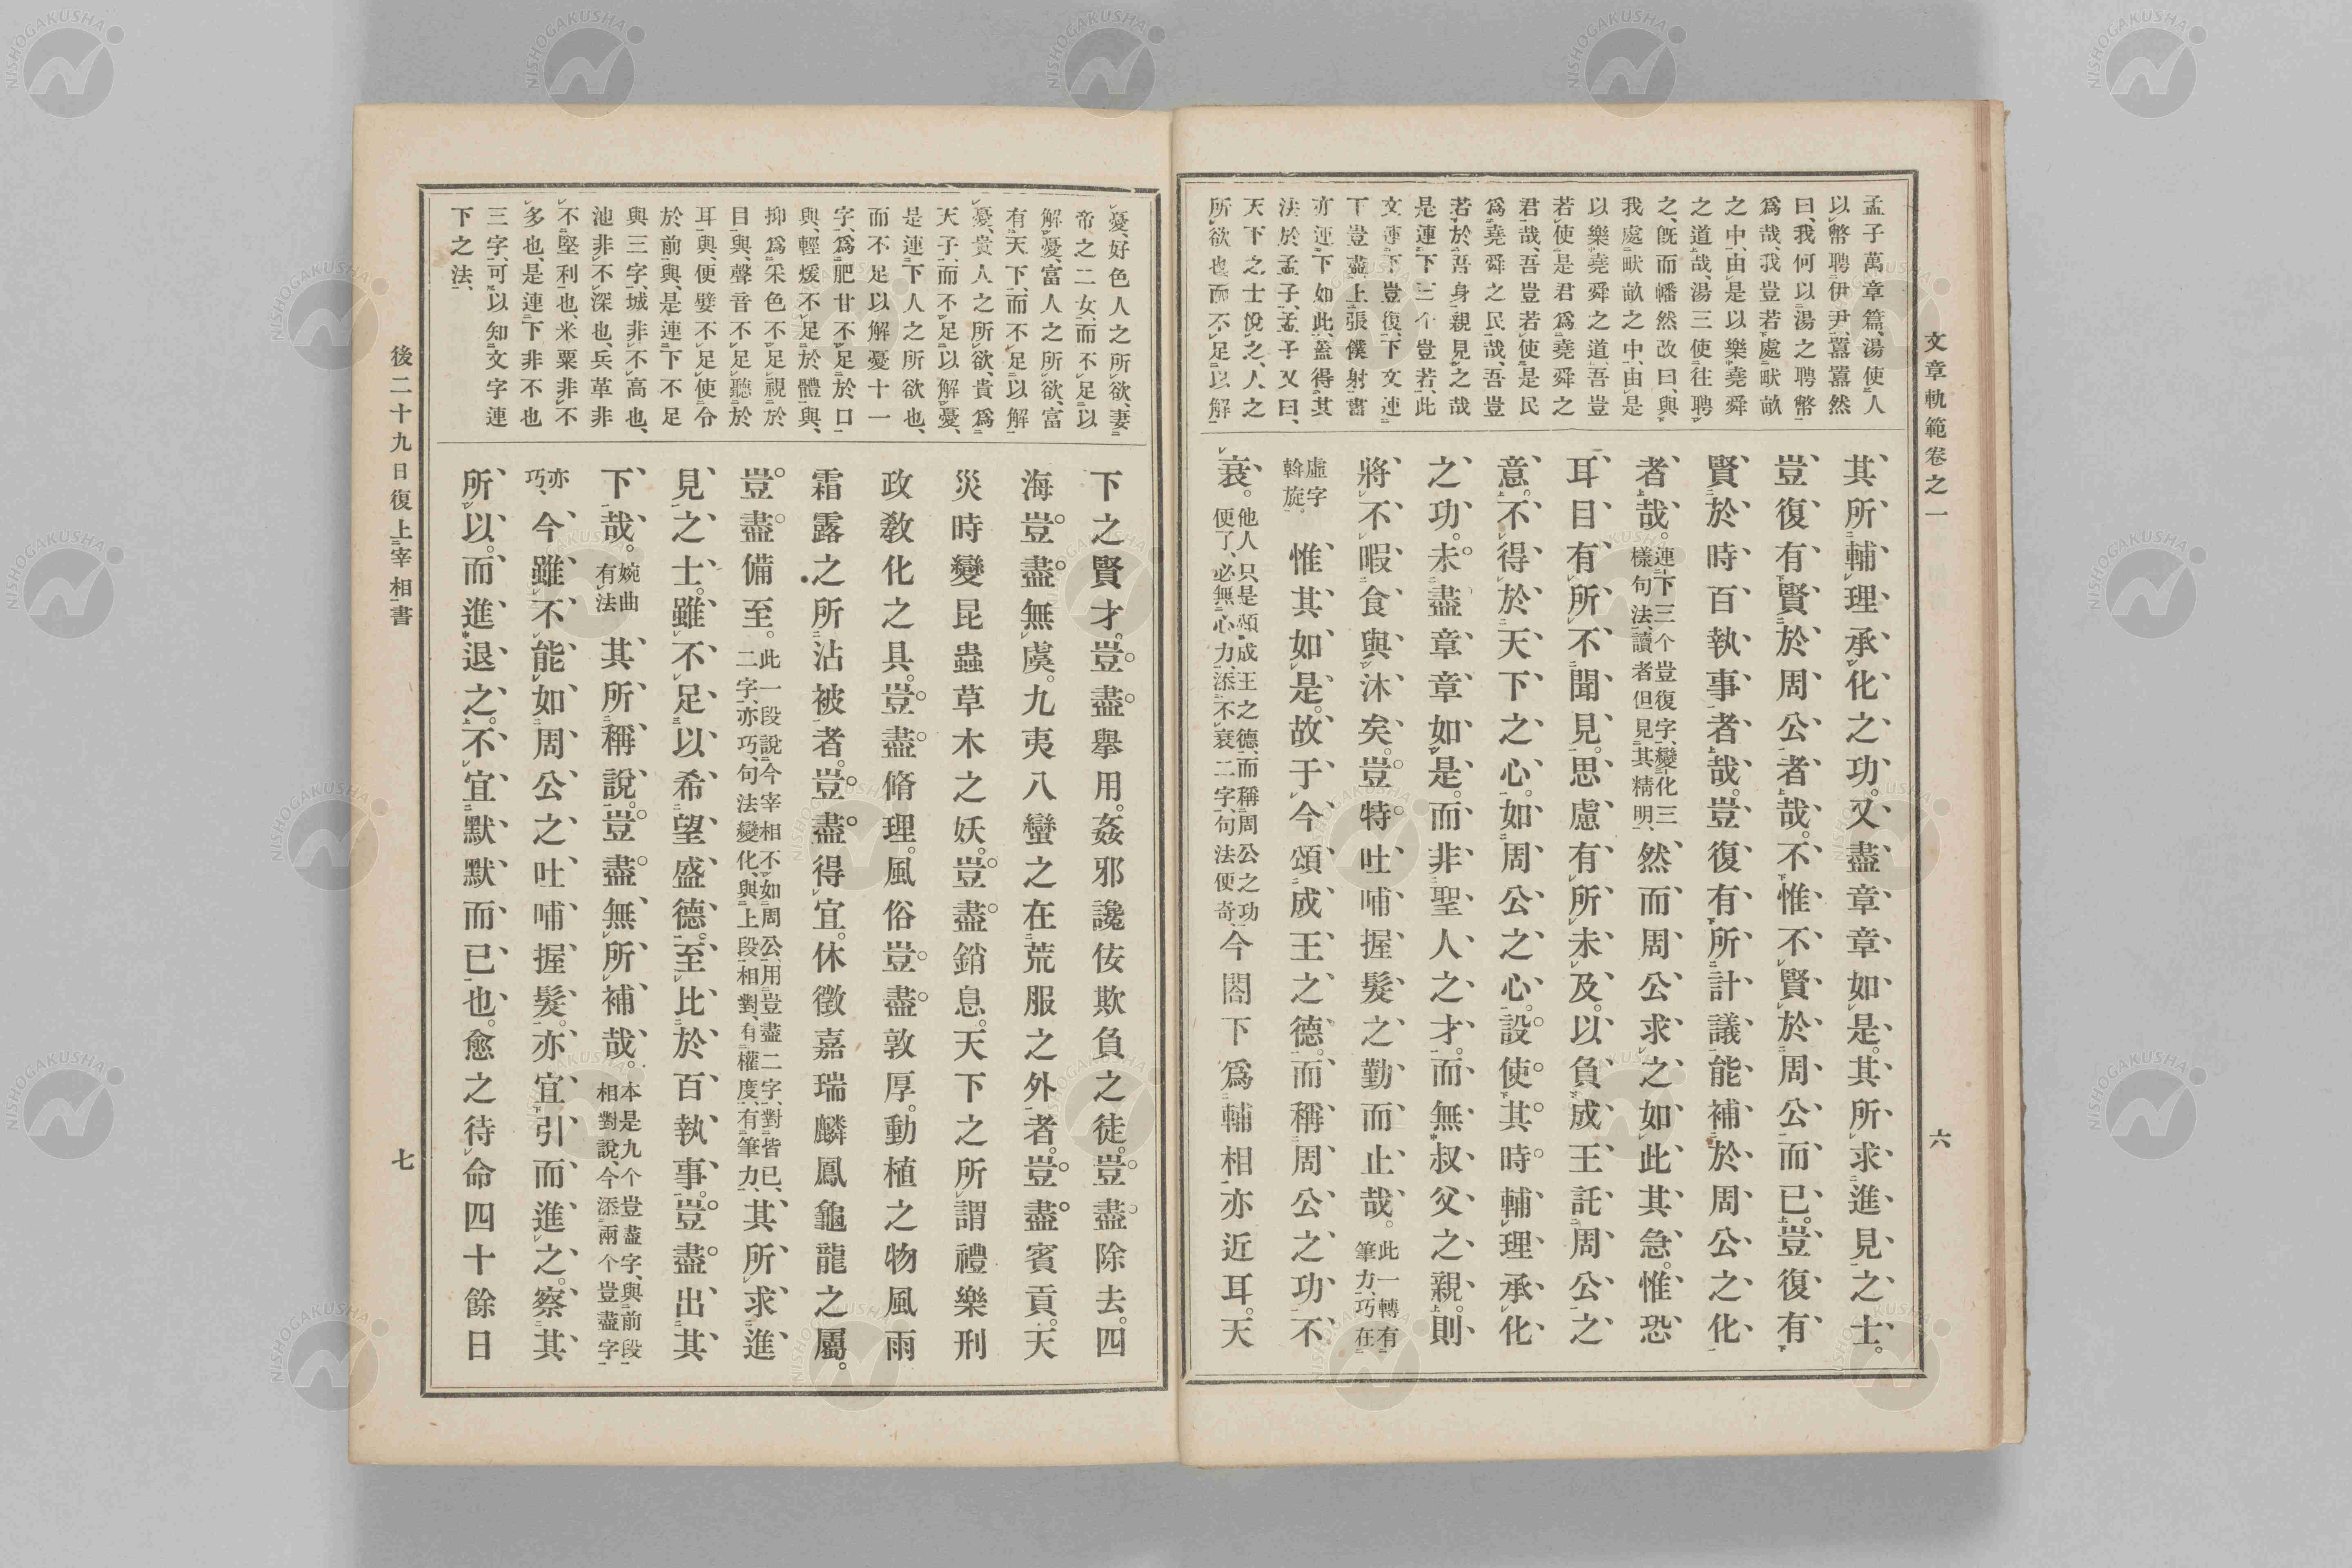 文章軌範卷之一
六
孟子萬章篇、湯使人
以幣聘伊尹、囂囂然
曰、我何以湯之聘幣
爲哉、我豈若處畎畝
之中、由是以樂堯舜
之道哉、湯三使往聘
之、旣而幡然改曰、與
我處畎畝之中、由是
以樂堯舜之道、吾豈
若使是君爲堯舜之
君哉、吾豈若使是民
爲堯舜之民哉、吾豈
若於吾身親見之哉
是連下三个豈若、此
文連下豈復、下文連
下豈盡、上張僕射書
亦連下如此、蓋得其
法於孟子、孟子又曰、
天下之士悅之、人之
所欲也、而不足以解
其所輔理承化之功。又盡章章如是。其所求進見之士。
豈復有賢於周公者哉。不惟不賢於周公而已。豈復有
賢於時百執事者哉。豈復有所計議能補於周公之化
者哉。連下三个豈復字、變化三樣句法、讀者但見其精明、然而周公求之如此其急。惟恐
耳目有所不聞見。思慮有所未及。以負成王託周公之
意。不得於天下之心。如周公之心。設使其時輔理承化
之功。未盡章章如是。而非聖人之才。而無叔父之親。則
將不暇食與沐矣。豈特吐哺握髮之勤而止哉。此一轉有筆力、巧在
虛字斡旋。惟其如是。故于今頌成王之德。而稱周公之功不
衰。他人只是頌成王之德、而稱周公之功便了、必無心力、添不衰二字、句法便奇、今閤下爲輔相亦近耳。天
憂、好色人之所欲、妻
帝之二女、而不足以
解憂、富人之所欲、富
有天下、而不足以解
憂、貴人之所欲、貴爲
天子、而不足以解憂、
是連下人之所欲也、
而不足以解憂十一
字、爲肥甘不足於口
與、輕煖不足於體與、
抑爲采色不足視於
目與、聲音不足聽於
耳與、便嬖不足使令
於前與、是連下不足
與三字、城非不高也、
池非不深也、兵革非
不堅利也、米粟非不
多也、是連下非不也
三字、可以知文字連
下之法、
下之賢才。豈盡擧用。姦邪讒佞欺負之徒。豈盡除去。四
海豈盡無虞。九夷八蠻之在荒服之外者。豈盡賓貢。天
災時變昆蟲草木之妖。豈盡銷息。天下之所謂禮樂刑
政敎化之具。豈盡脩理。風俗豈盡敦厚。動植之物風雨
霜露之所沾被者。豈盡得宜。休徵嘉瑞麟鳳龜龍之屬。
豈盡備至。此一段說今宰相不如周公、用豈盡二字、對皆已二字、亦巧、句法變化、與上段相對、有權度、有筆力、其所求進
見之士。雖不足以希望盛德。至比於百執事。豈盡出其
下哉。婉曲有法其所稱說。豈盡無所補哉。本是九个豈盡字、與前段相對說、今添兩个豈盡字
亦巧、今雖不能如周公之吐哺握髮。亦宜引而進之。察其
所以。而進退之。不宜默默而已也。愈之待命四十餘日
後二十九日復上宰相書
七